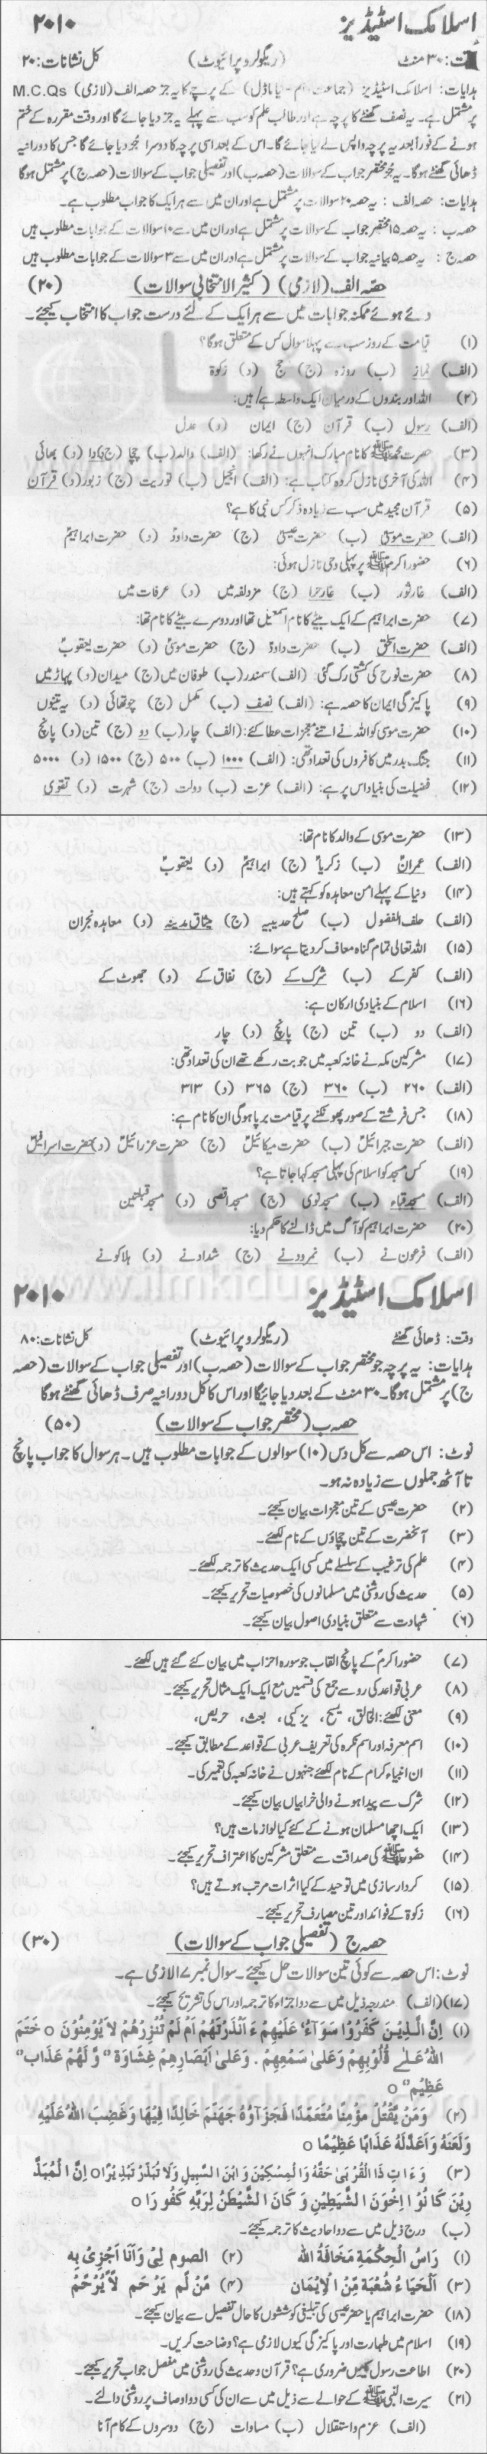 اسلامک اسٹیڈیز ۲۰۱۰
وقت: ۳۰ منٹ (ریگولر و پرائیوٹ) کل نشانات: ۲۰
ہدایات: اسلامک اسٹیڈیز (جماعت نہم - نیا ماڈل) کے پرچے کا یہ جز حصہ الف (لازمی) M.C.Qs
پر مشتمل ہے۔ یہ نصف گھنٹے کا پرچہ ہے اور طالب علم کو سب سے پہلے یہ جز دیا جائے گا اور وقت مقررہ کے ختم
ہونے کے فوراً بعد یہ پرچہ واپس لے لیا جائے گا۔ اس کے بعد اسی پرچہ کا دوسرا جُز دیا جائے گا جس کا دورانیہ
ڈھائی گھنٹے ہوگا۔ یہ جُز مختصر جواب کے سوالات (حصہ ب) اور تفصیلی جواب کے سوالات (حصہ ج) پر مشتمل ہوگا
ہدایات: حصہ الف: یہ حصہ ۲۰ سوالات پر مشتمل ہے اور ان میں سے ہر ایک کا جواب مطلوب ہے۔
حصہ ب: یہ حصہ ۱۵ مختصر جواب کے سوالات پر مشتمل ہے اور ان میں سے ۱۰ سوالات کے جوابات مطلوب ہیں
حصہ ج: یہ حصہ ۵ بیانیہ جواب کے سوالات پر مشتمل ہے اور ان میں سے ۳ سوالات کے جوابات مطلوب ہیں
حصہ الف (لازمی) (کثیر الانتخابی سوالات) (۲۰)
دئے ہوئے ممکنہ جوابات میں سے ہر ایک کے لئے درست جواب کا انتخاب کیجئے۔
(۱) قیامت کے روز سب سے پہلا سوال کس کے متعلق ہوگا؟
(الف) نماز (ب) روزہ (ج) حج (د) زکوٰۃ
(۲) اللہ اور بندوں کے درمیان ایک واسطہ ہے/ہیں:
(الف) رسول (ب) قرآن (ج) ایمان (د) عدل
(۳) حضرت محمد ﷺ کا نام مبارک انہوں نے رکھا: (الف) والد (ب) چچا (ج) دادا (د) بھائی
(۴) اللہ کی آخری نازل کردہ کتاب ہے: (الف) انجیل (ب) توریت (ج) زبور (د) قرآن
(۵) قرآن مجید میں سب سے زیادہ ذکر کس نبی کا ہے؟
(الف) حضرت موسیٰؑ (ب) حضرت عیسیٰؑ (ج) حضرت داودؑ (د) حضرت ابراہیمؑ
(۶) حضور اکرم ﷺ پر پہلی وحی نازل ہوئی:
(الف) غار ثور (ب) غار حرا (ج) مزدلفہ میں (د) عرفات میں
(۷) حضرت ابراہیمؑ کے ایک بیٹے کا نام اسمعیلؑ تھا اور دوسرے بیٹے کا نام تھا:
(الف) حضرت اسحٰقؑ (ب) حضرت داودؑ (ج) حضرت موسیٰؑ (د) حضرت یعقوبؑ
(۸) حضرت نوحؑ کی کشتی رک گئی: (الف) سمندر (ب) طوفان میں (ج) میدان (د) پہاڑ میں
(۹) پاکیزگی ایمان کا حصہ ہے: (الف) نصف (ب) مکمل (ج) چوتھائی (د) یہ تینوں
(۱۰) حضرت موسیٰؑ کو اللہ نے اتنے معجزات عطا کئے: (الف) چار (ب) دو (ج) تین (د) پانچ
(۱۱) جنگ بدر میں کافروں کی تعداد تھی: (الف) ۱۰۰۰ (ب) ۵۰۰ (ج) ۱۵۰۰ (د) ۵۰۰۰
(۱۲) فضیلت کی بنیاد اس پر ہے: (الف) عزت (ب) دولت (ج) شہرت (د) تقویٰ
(۱۳) حضرت موسیٰؑ کے والد کا نام تھا:
(الف) عمرانؑ (ب) زکریاؑ (ج) ابراہیمؑ (د) یعقوبؑ
(۱۴) دنیا کے پہلے امن معاہدہ کو کہتے ہیں:
(الف) حلف الفضول (ب) صلح حدیبیہ (ج) میثاق مدینہ (د) معاہدہ نجران
(۱۵) اللہ تعالیٰ تمام گناہ معاف کر دیتا ہے سوائے:
(الف) کفر کے (ب) شرک کے (ج) نفاق کے (د) جھوٹ کے
(۱۶) اسلام کے بنیادی ارکان ہے:
(الف) دو (ب) تین (ج) پانچ (د) چار
(۱۷) مشرکین مکہ نے خانہ کعبہ میں جو بت رکھے تھے ان کی تعداد تھی:
(الف) ۲۶۰ (ب) ۳۶۰ (ج) ۳۶۵ (د) ۳۱۳
(۱۸) جس فرشتے کے صور پھونکنے پر قیامت برپا ہوگی ان کا نام ہے:
(الف) حضرت جبرائیلؑ (ب) حضرت میکائیلؑ (ج) حضرت عزرائیلؑ (د) حضرت اسرافیلؑ
(۱۹) کس مسجد کو اسلام کی پہلی مسجد کہا جاتا ہے؟
(الف) مسجد قباء (ب) مسجد نبوی (ج) مسجد اقصیٰ (د) مسجد قبلتین
(۲۰) حضرت ابراہیمؑ کو آگ میں ڈالنے کا حکم دیا:
(الف) فرعون نے (ب) نمرود نے (ج) شداد نے (د) ہلاکو نے
اسلامک اسٹیڈیز ۲۰۱۰
وقت: ڈھائی گھنٹے (ریگولر و پرائیوٹ) کل نشانات: ۸۰
ہدایات: یہ پرچہ جو مختصر جواب کے سوالات (حصہ ب) اور تفصیلی جواب کے سوالات (حصہ
ج) پر مشتمل ہوگا۔ ۳۰ منٹ کے بعد دیا جائیگا اور اس کا کل دورانیہ صرف ڈھائی گھنٹے ہوگا
حصہ ب (مختصر جواب کے سوالات) (۵۰)
نوٹ: اس حصہ سے کل دس (۱۰) سوالوں کے جوابات مطلوب ہیں۔ ہر سوال کا جواب پانچ
تا آٹھ جملوں سے زیادہ نہ ہو۔
(۲) حضرت عیسیٰؑ کے تین معجزات بیان کیجئے۔
(۳) آنحضرتؐ کے تین چچاؤں کے نام لکھئے۔
(۴) علم کی ترغیب کے سلسلے میں کسی ایک حدیث کا ترجمہ لکھئے۔
(۵) حدیث کی روشنی میں مسلمانوں کی خصوصیات تحریر کیجئے۔
(۶) شہادت سے متعلق بنیادی اصول بیان کیجئے۔
(۷) حضور اکرمؐ کے پانچ القاب جو سورہ احزاب میں بیان کئے گئے ہیں لکھئے۔
(۸) عربی قواعد کی رو سے جمع کی قسمیں مع ایک ایک مثال تحریر کیجئے۔
(۹) معنی لکھئے: الخالق، یسبح، یزکی، بعث، حریص۔
(۱۰) اسم معرفہ اور اسم نکرہ کی تعریف عربی کے قواعد کے مطابق کیجئے۔
(۱۱) ان انبیاء کرام کے نام لکھئے جنہوں نے خانہ کعبہ کی تعمیر کی۔
(۱۲) شرک سے پیدا ہونے والی خرابیاں بیان کیجئے۔
(۱۳) ایک اچھا مسلمان ہونے کے لئے کیا لوازمات ہیں؟
(۱۴) حضور ﷺ کی صداقت سے متعلق مشرکین کا اعتراف تحریر کیجئے۔
(۱۵) کردار سازی میں توحید کے کیا اثرات مرتب ہوتے ہیں؟
(۱۶) زکوٰۃ کے فوائد اور تین مصارف تحریر کیجئے۔
حصہ ج (تفصیلی جواب کے سوالات) (۳۰)
نوٹ: اس حصہ سے کوئی تین سوالات حل کیجئے۔ سوال نمبر ۱۷ لازمی ہے۔
(۱۷) (الف) مندرجہ ذیل میں سے دو اجزاء کا ترجمہ اور اس کی تشریح کیجئے۔
(۱) اِنَّ الَّذِیْنَ کَفَرُوْا سَوَآءٌ عَلَیْہِمْ ءَاَنْذَرْتَہُمْ اَمْ لَمْ تُنْذِرْہُمْ لَا یُؤْمِنُوْنَ ○ خَتَمَ
اللّٰہُ عَلٰی قُلُوْبِہِمْ وَعَلٰی سَمْعِہِمْ ۔ وَعَلٰی اَبْصَارِہِمْ غِشَاوَۃٌ وَّ لَہُمْ عَذَابٌ
عَظِیْمٌ ○
(۲) وَمَنْ یَّقْتُلْ مُؤْمِنًا مُّتَعَمِّدًا فَجَزَآؤُہٗ جَہَنَّمُ خَالِدًا فِیْہَا وَغَضِبَ اللّٰہُ عَلَیْہِ
وَلَعَنَہٗ وَاَعَدَّ لَہٗ عَذَابًا عَظِیْمًا ○
(۳) وَءَاتِ ذَا الْقُرْبٰی حَقَّہٗ وَالْمِسْکِیْنَ وَابْنَ السَّبِیْلِ وَلَا تُبَذِّرْ تَبْذِیْرًا ○ اِنَّ الْمُبَذِّ
رِیْنَ کَانُوْا اِخْوٰنَ الشَّیٰطِیْنِ وَکَانَ الشَّیْطٰنُ لِرَبِّہٖ کَفُوْرًا ○
(ب) درج ذیل میں سے دو احادیث کا ترجمہ کیجئے۔
(۱) رَاْسُ الْحِکْمَۃِ مَخَافَۃُ اللّٰہ (۲) الصوم لِیْ وَاَنَا اَجْزِیْ بِہٖ
(۳) اَلْحَیَاءُ شُعْبَۃٌ مِّنَ الْاِیْمَان (۴) مَنْ لَمْ یَرْحَمْ لَا یُرْحَمْ
(۱۸) حضرت ابراہیمؑ یا حضرت عیسیٰؑ کی تبلیغی کوششوں کا حال تفصیل سے بیان کیجئے۔
(۱۹) اسلام میں طہارت اور پاکیزگی کیوں لازمی ہے؟ وضاحت کریں۔
(۲۰) اطاعت رسولؐ کیوں ضروری ہے؟ قرآن و حدیث کی روشنی میں مفصل جواب تحریر کیجئے۔
(۲۱) سیرت النبی ﷺ کے حوالے سے ذیل میں سے ان کی کسی دو اوصاف پر روشنی ڈالئے۔
(الف) عزم و استقلال (ب) مساوات (ج) دوسروں کے کام آنا